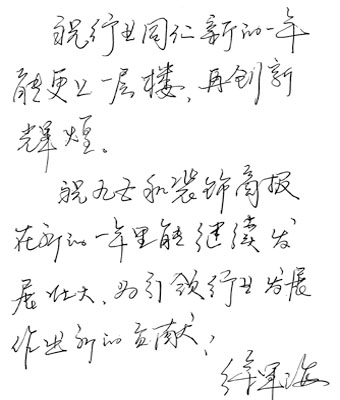 祝行业同仁新的一年
能更上一层楼,再创新
辉煌。
祝九正和装饰商报
在新的一年里能继续发
展壮大,为引领行业发展
作出新的贡献!
徐军海